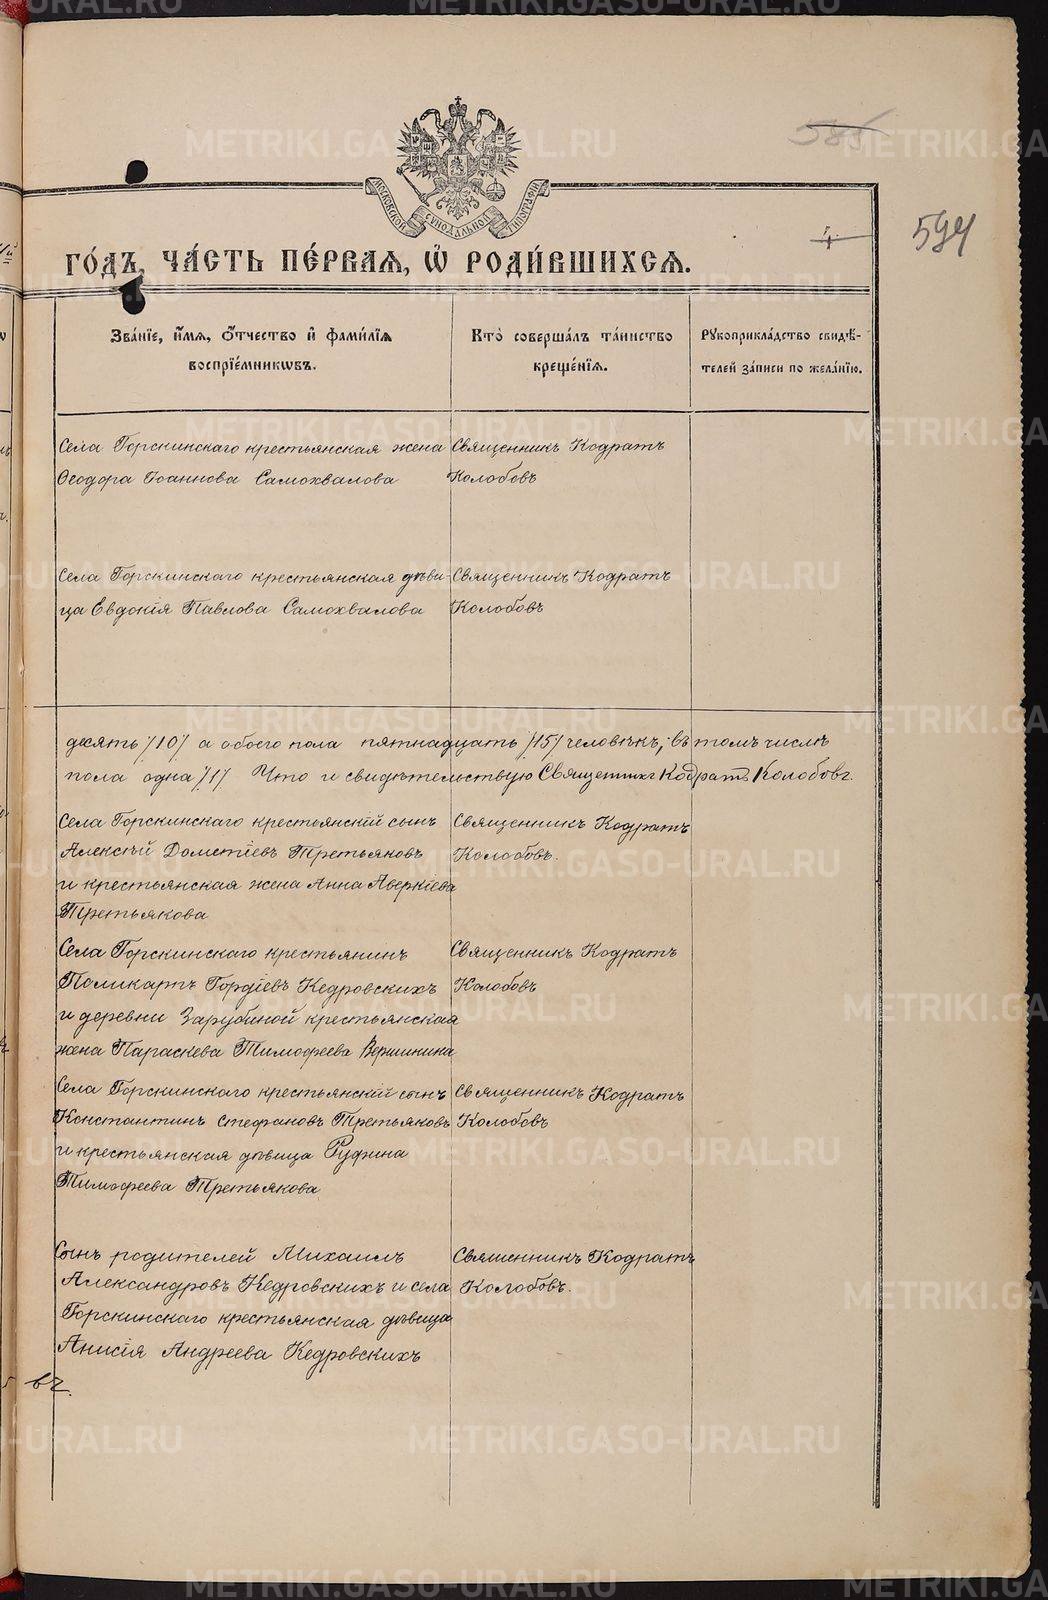 585
594
4
МОСКОВСКОЙ СѴНОДАЛЬНОЙ ТИПОГРАФІИ
ГО́ДЪ, ЧА́СТЬ ПЕ́РВАѦ, Ѡ҆ РОДИ́ВШИХСѦ.
Зва́нїе, и҆́мѧ, ѻ҆́тчество и҆ фами́лїѧ
воспрїе́мникѡвъ.
Кто̀ соверша́лъ та́инство
креще́нїѧ.
Рꙋкоприкла́дство свидѣ́-
телей за́писи по жела́нїю.
Села Горскинскаго крестьянская жена
Ѳеодора Іоаннова Самохвалова
Священникъ Кодратъ
Колобовъ
Села Горскинскаго крестьянская дѣви-
ца Евдокія Павлова Самохвалова
Священникъ Кодратъ
Колобовъ
десять /10/ а обоего пола пятнадцать /15/ человѣкъ, въ томъ числѣ
пола одна /1/ Что и свидѣтельствую Священникъ Кодратъ Колобовъ.
Села Горскинскаго крестьянскій сынъ
Алексѣй Дометіевъ Третьяковъ
и крестьянская жена Анна Аверкіева
Третьякова
Священникъ Кодратъ
Колобовъ.
Села Горскинскаго крестьянинъ
Поликарпъ Гордіевъ Кедровскихъ
и деревни Зарубиной крестьянская
жена Параскева Тимофеева Вершинина
Священникъ Кодратъ
Колобовъ
Села Горскинскаго крестьянскій сынъ
Константинъ Стефановъ Третьяковъ
и крестьянская дѣвица Руфина
Тимофеева Третьякова
Священникъ Кодратъ
Колобовъ
Сынъ родителей Михаилъ
Александровъ Кедровскихъ и села
Горскинскаго крестьянская дѣвица
Анисія Андреева Кедровскихъ
Священникъ Кодратъ
Колобовъ.
METRIKI.GASO-URAL.RU